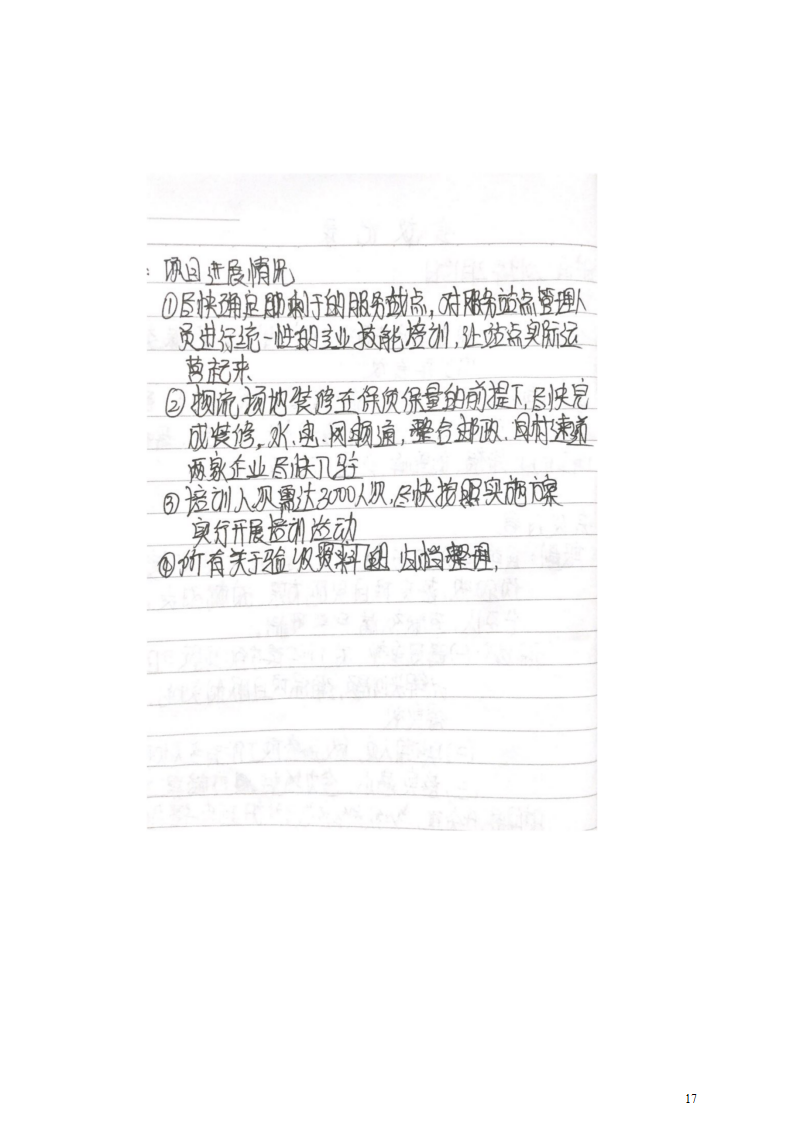 ：项目进展情况
①尽快确定即剩于的服务站点，对服务站点管理人
员进行统一性的专业技能培训，让站点实际运
营起来
②物流场地装修在保质保量的前提下，尽快完
成装修。水、电、网频通，整合邮政、同村速递
两家企业尽快入驻
③培训人次需达3000人次，尽快按照实施方案
实行开展培训活动
④所有关于验收资料的归档整理，
17